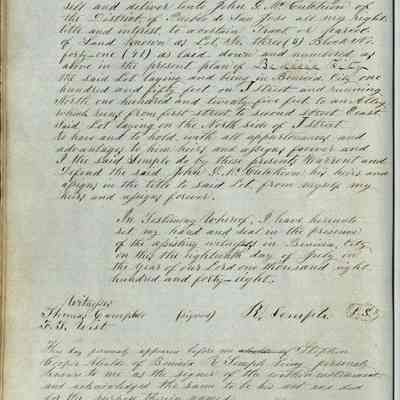 sell and deliver unto John G. McCutcheon of
the District of Pueblo de San Jose all my right
title and interest to a certain Tract or parcel
of Land known as Lot No. Three (3) Block No.
forty-one (41) as laid down and numbered as
above in the present plan of Benicia City
the said Lot laying and being in Benicia City one
hundred and fifty feet on I Street and running
North one hundred and twenty five feet to an Alley
which runs from first street to second street East
said Lot laying on the North side of I Street.
To have and to hold, with its appurtenances and
advantages to him heirs and assigns forever and
I the said Semple do by these presents Warrant and
Defend the said John G. McCutcheon his heirs and
assigns in the title to said Lot, from myself my
heirs and assigns forever.
In Testimony Whereof, I have hereunto
set my hand and seal in the presence
of the assisting witnesses in Benicia City
on this the eighteenth day of July in
the Year of our Lord one thousand eight
hundred and forty-eight.
Witnesses
Thomas Campbell (signed) R. Semple (L.S.)
F. G. West
This day personally appeared before me Stephen
Cooper Alcalde of Benicia R. Semple being personally
known to me as the signer of the within instrument
and acknowledged the same to be his act and deed
for the purpose therein named